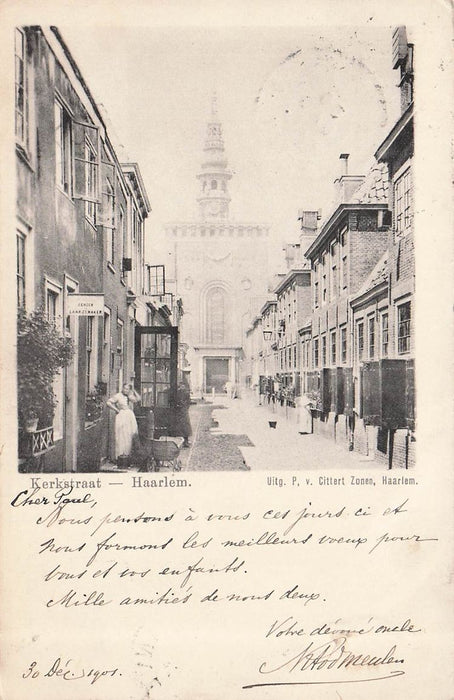 Kerkstraat — Haarlem.
Uitg. P. v. Cittert Zonen, Haarlem.
Cher Paul,
Nous pensons à vous ces jours-ci et
nous formons les meilleurs voeux pour
vous et vos enfants.
Mille amitiés de nous deux.
Votre dévoué oncle
30 Déc. 1901.